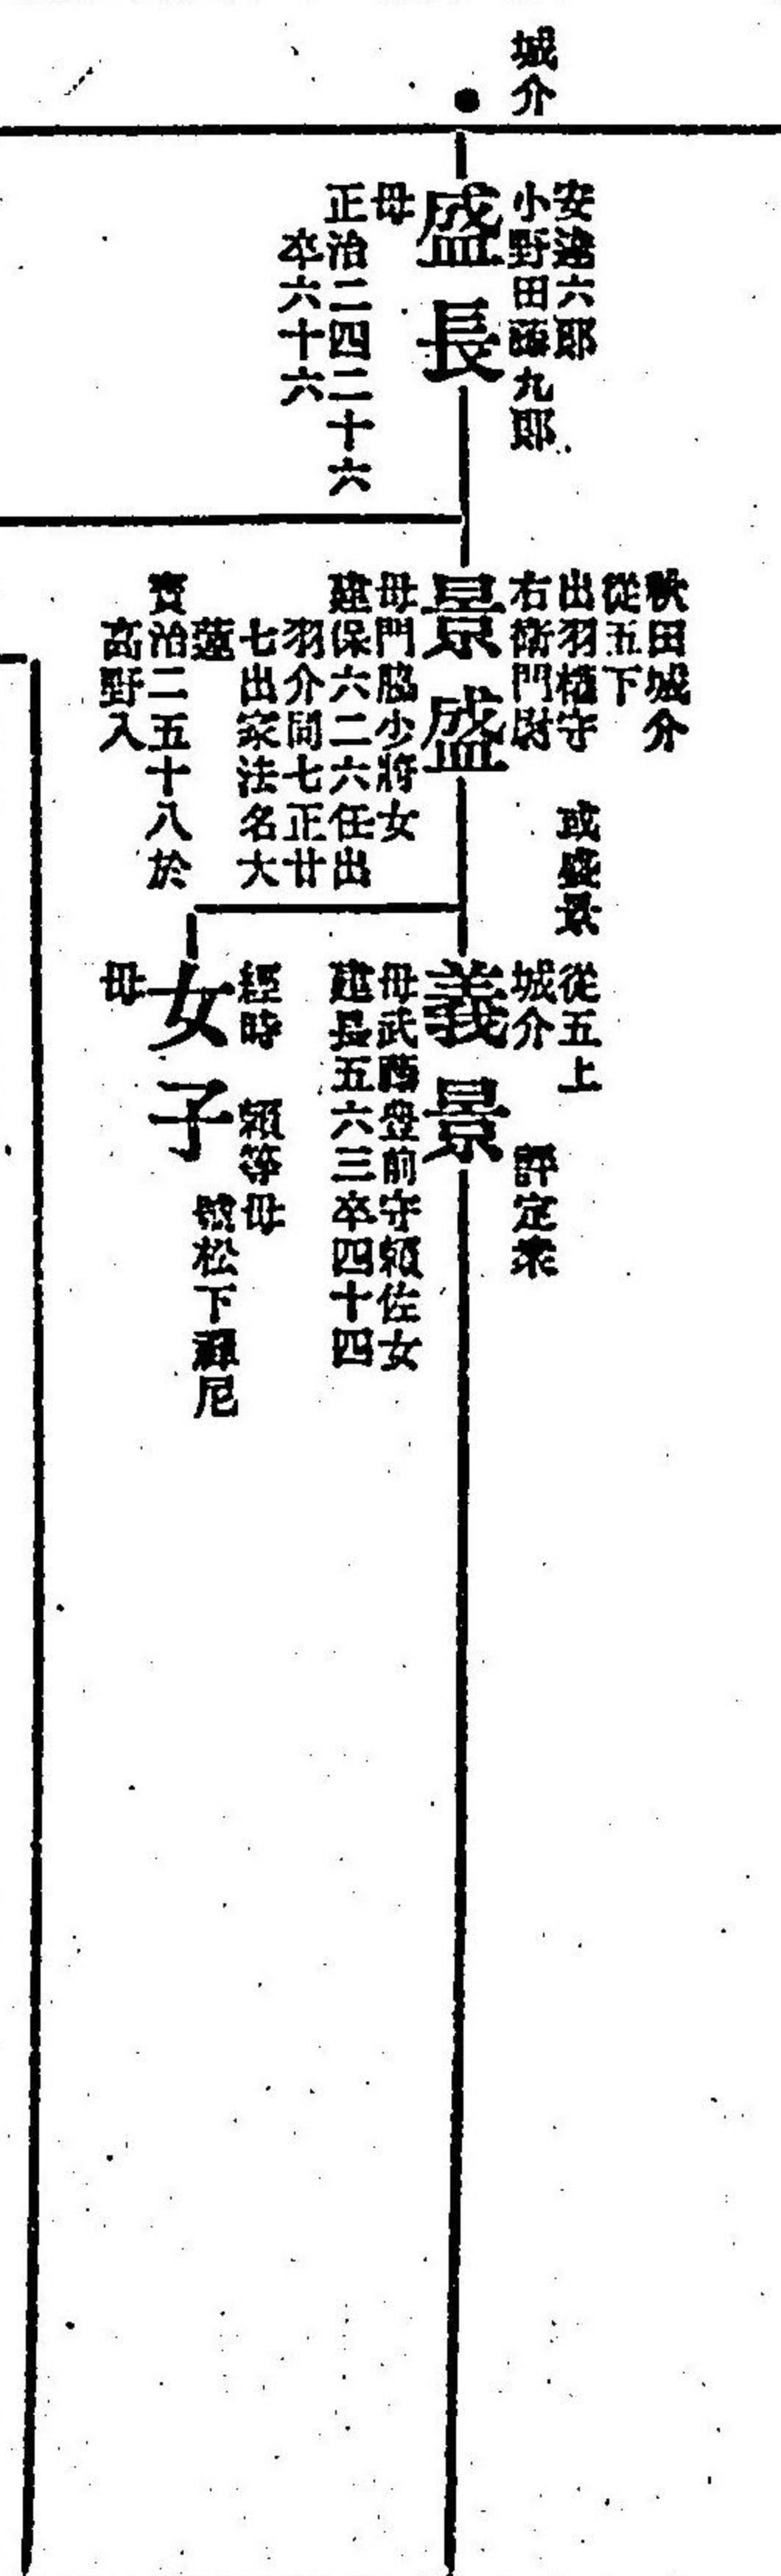 城介
安達六郎
小野田藤九郎
盛長
母
正治二四二十六
卒六十六
秋田城介
從五下
出羽權守 或盛景
右衛門尉
景盛
母門脇少將女
建保六二六任出
羽介同七正廿
七出家法名大
蓮
寶治二五十八於
高野入
從五上
城介 評定衆
義景
母武藤豊前守頼佐女
建長五六三卒四十四
經時 頼等母
號松下禪尼
女子
母